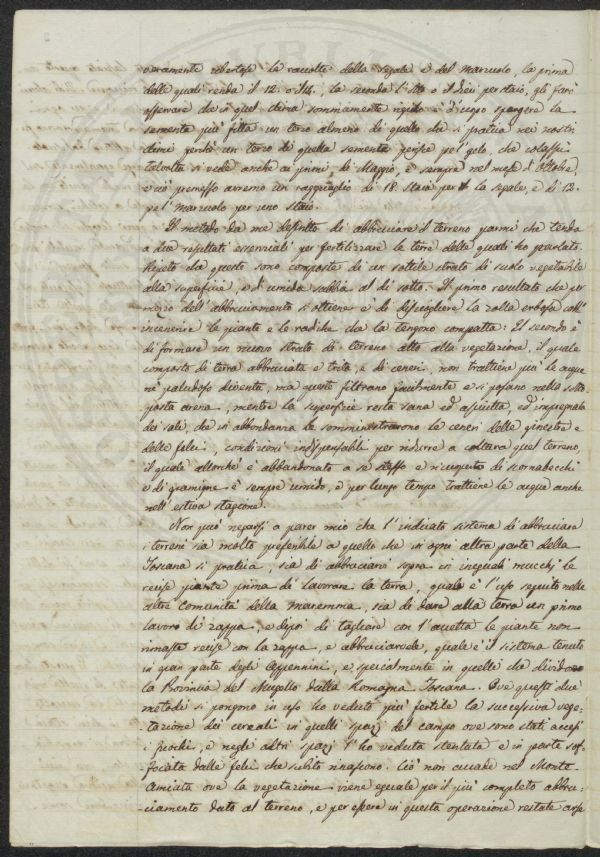 veramente ubertose le raccolte della segale e del marzuolo, la prima
delle quali renda il 12. o 14., la seconda l'otto o il dieci per staio, gli farò
osservare che in quel clima sommamente rigido è d'uopo spargere la
sementa più fitta un terzo almeno di quello che si pratica nei nostri
climi perchè un terzo di quella sementa perisce pel gelo, che colassù
talvolta si vede anche ai primi di Maggio, e sempre nel mese d'ottobre,
e ciò premesso avremo un ragguaglio di 18. staia per la segale, e di 12.
pe'l marzuolo per uno staio.
Il metodo da me descritto di abbruciare il terreno parmi che tenda
a due resultati essenziali per fertilizzare le terre delle quali ho parlato.
Riposto che queste sono composte di un sottile strato di suolo vegetabile
alla superficie, e di umida sabbia al di sotto. Il primo resultato che per
mezzo dell'abbruciamento si ottiene è di disciogliere la zolla erbosa coll'
incenerire le piante e le radiche che la tengono compatta: Il secondo è
di formare un nuovo strato di terreno atto alla vegetazione, il quale
composto di terra abbruciata e trita, e di ceneri, non trattiene più le acque
nè paludoso diventa, ma queste filtrano facilmente e si posano nella sotto-
posta arena, mentre la superficie resta sana ed asciutta, ed impregnata
dei sali, che in abbondanza le somministrarono le ceneri delle ginestre e
delle felci, condizioni indispensabili per ridurre a coltura quel terreno,
il quale allorchè è abbandonato a se stesso e ricuoperto di scornabecchi
e di gramigne è sempre umido, e per lungo tempo trattiene le acque anche
nell'estiva stagione.
Non può negarsi a parer mio che l'indicato sistema di abbruciare
i terreni sia molto preferibile a quello che in ogni altra parte della
Toscana si pratica, sia di abbruciarvi sopra in ineguali mucchi le
recise piante prima di lavorare la terra, quale è l'uso seguito nelle
altre comunità della maremma, sia di dare alla terra un primo
lavoro di zappa, e dipoi di tagliare con l'accetta le piante non
rimaste recise con la zappa, e abbruciarvele, quale è il sistema tenuto
in gran parte degli Appennini, e specialmente in quella che divide
la Provincia del Mugello dalla Romagna Toscana. Ove questi due
metodi si pongono in uso ho veduta più fertile la successiva vege-
tazione dei cereali in quelli spazj del campo ove sono stati accesi
i fuochi, e negli altri spazj l'ho veduta stentata e in parte sof-
focata dalle felci che subito rinascono. Ciò non accade nel Monta-
miata ove la vegetazione viene eguale per il più completo abbru-
ciamento dato al terreno, e per essere in questa operazione restate arse